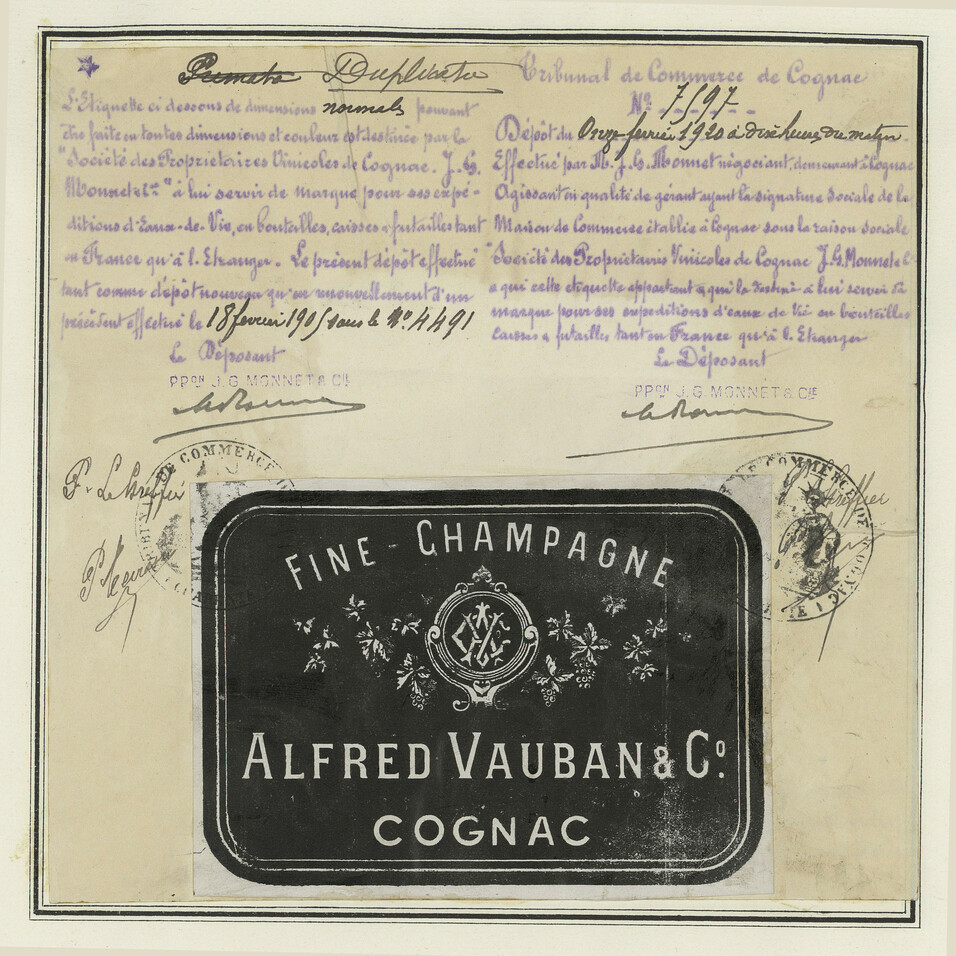 Duplicata
L'Etiquette ci dessous de dimensions normales pouvant
être faite en toutes dimensions et couleur est destinée par la
"Société des Propriétaires Vinicoles de Cognac. J. G.
Monnet & Cie" à lui servir de marque pour ses expé-
ditions d'Eaux-de-Vie, en bouteilles, caisses & futailles tant
en France qu'à l'Etranger. Le présent dépôt effectué
tant comme dépôt nouveau qu'en renouvellement d'un
précédent effectué le 18 février 1905 sous le No. 4491
Le Déposant
PPON J. G. MONNET & CIE
Tribunal de Commerce de Cognac
No 7597
Dépôt du Onze février 1920 à dix heures du matin
Effectué par M. J. G. Monnet négociant demeurant à Cognac
Agissant en qualité de gérant ayant la signature sociale de la
Maison de Commerce établie à Cognac sous la raison sociale
"Société des Propriétaires Vinicoles de Cognac J. G. Monnet & Cie
à qui cette etiquette appartient & qui la destine à lui servir de
marque pour ses expeditions d'eaux de Vie en bouteilles
caisses & futailles tant en France qu'à l'Etranger
Le Déposant
PPON J. G. MONNET & CIE
P. Le Greffier
DE COMMERCE DE
COMMERCE DE COGNAC
Greffier
FINE-CHAMPAGNE
ALFRED VAUBAN & Co.
COGNAC